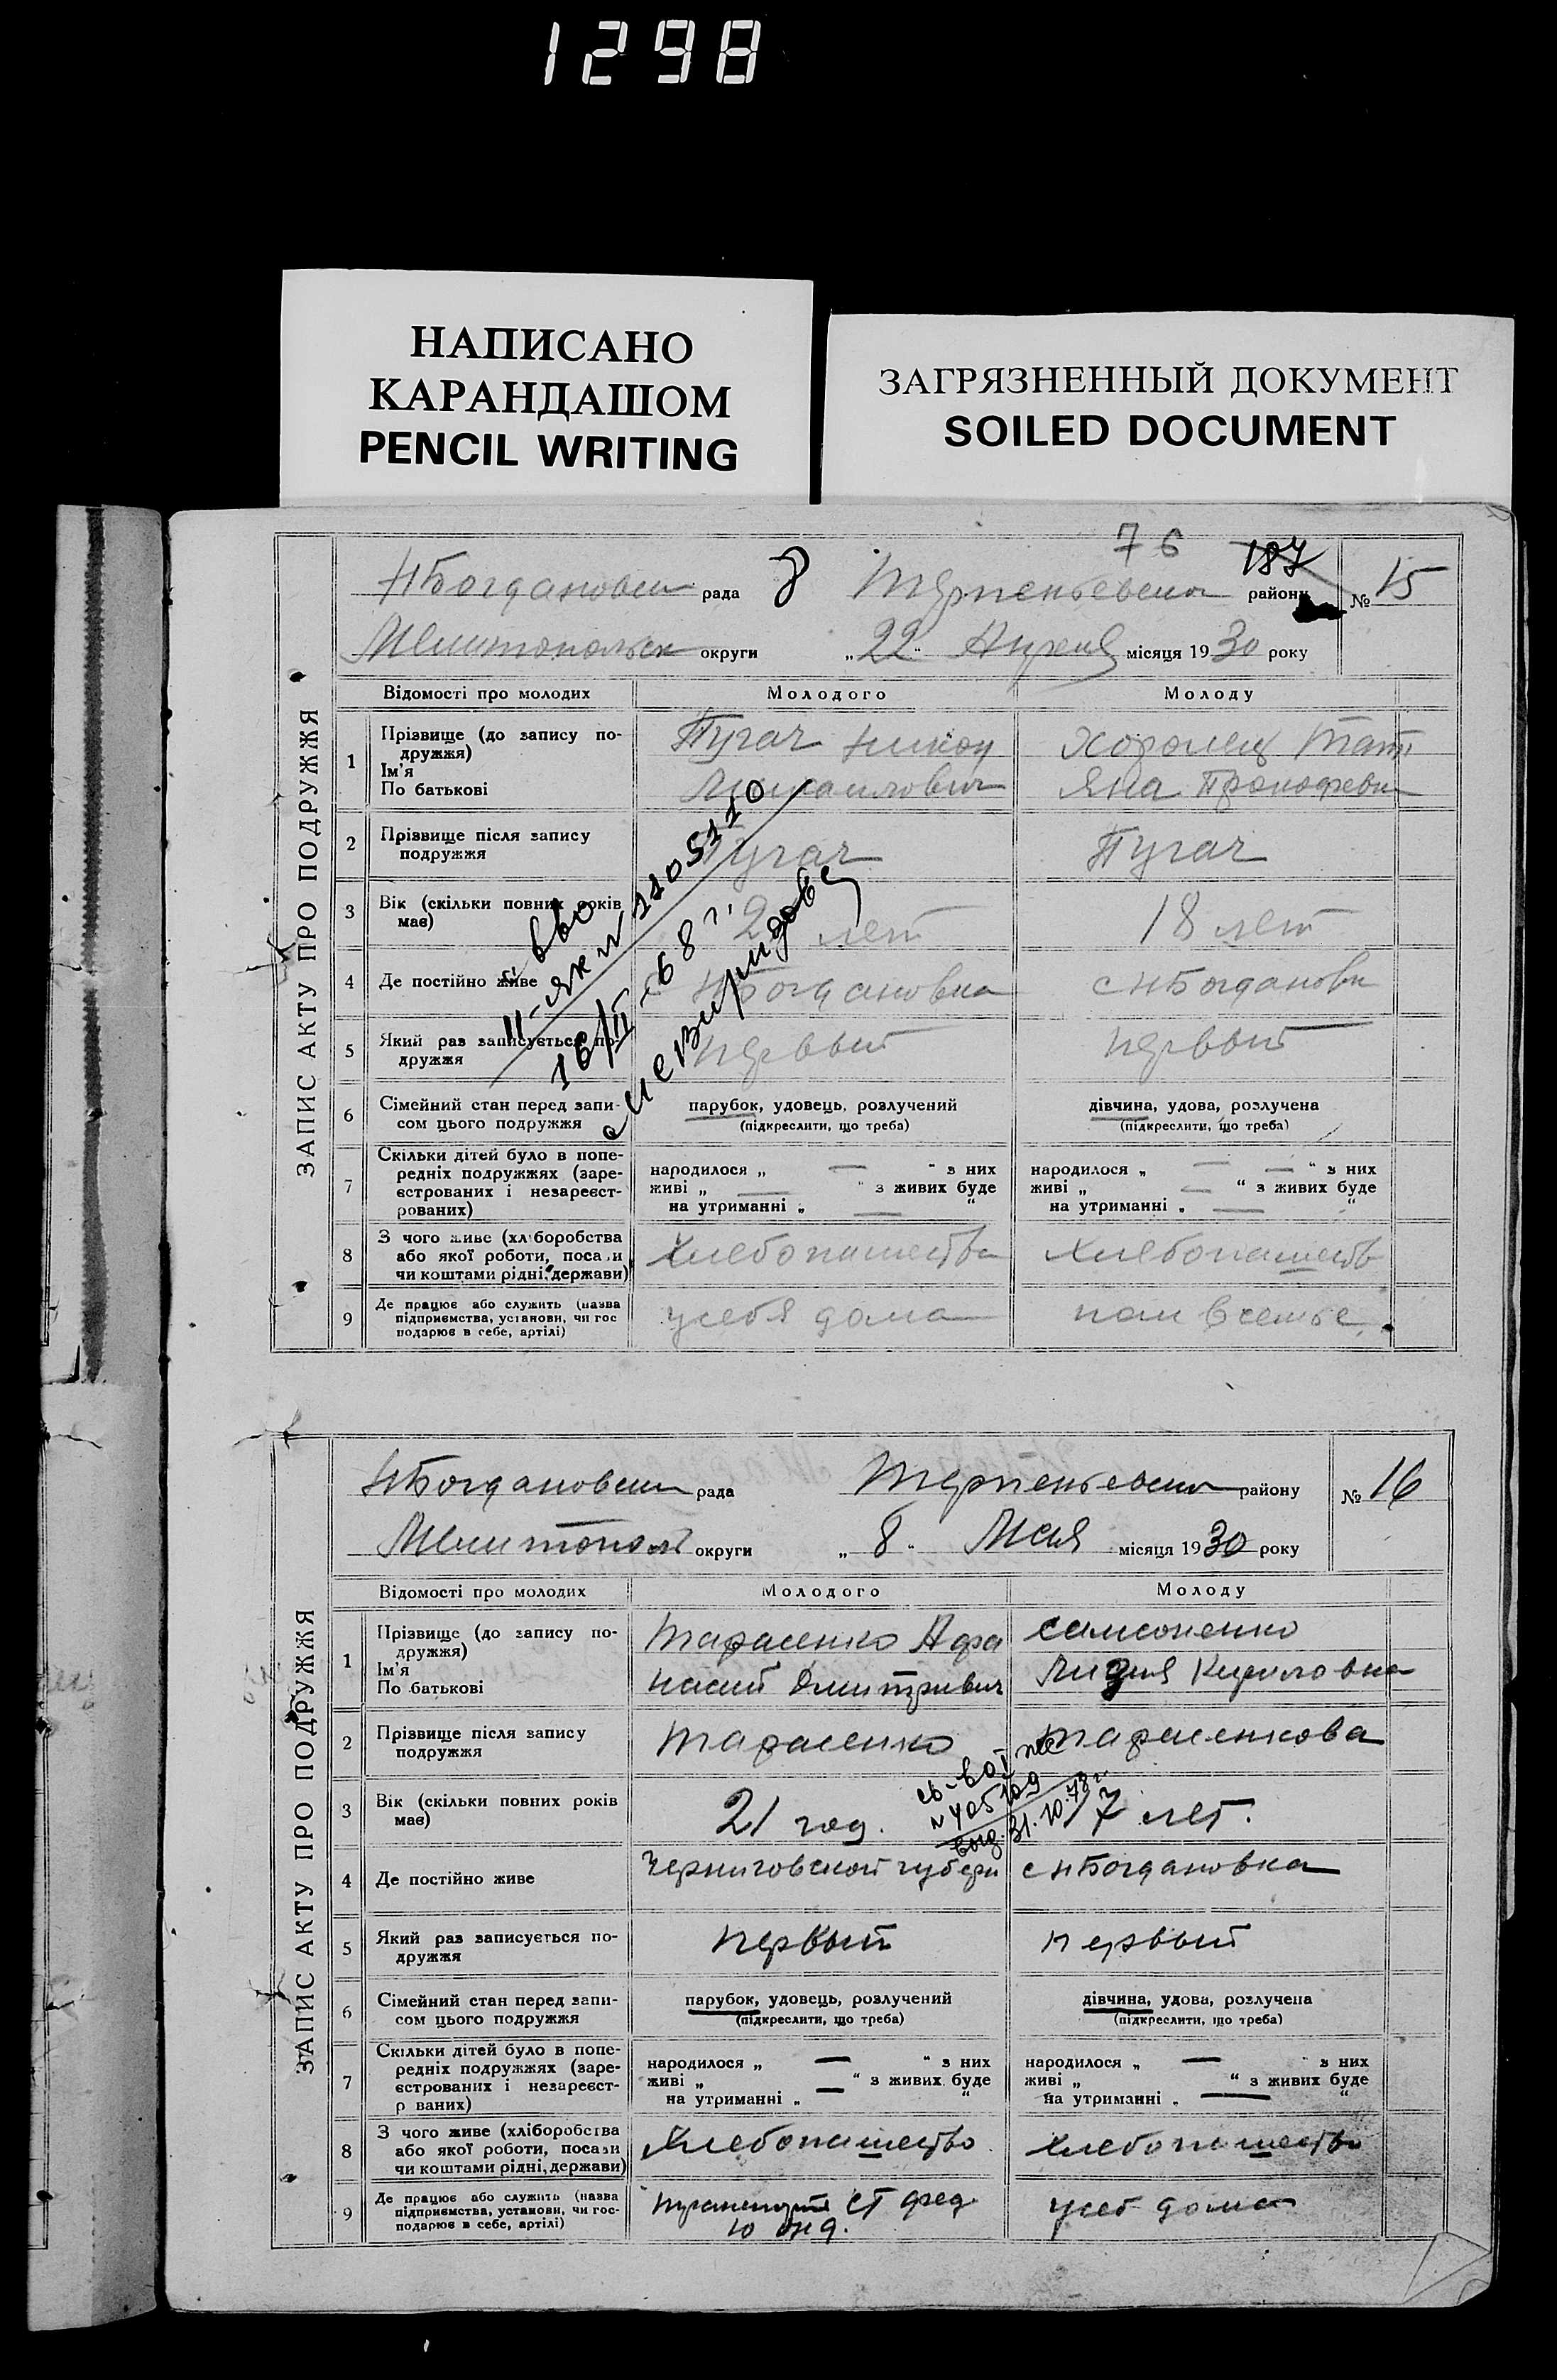 1298
НАПИСАНО
КАРАНДАШОМ
PENCIL WRITING
ЗАГРЯЗНЕННЫЙ ДОКУМЕНТ
SOILED DOCUMENT
76 187
НБогдановск рада Терпеньевска району № 15
Мелитопольск округи „22“ Апреля місяця 1930 року
ЗАПИС АКТУ ПРО ПОДРУЖЖЯ
Відомості про молодих Молодого Молоду
1 Прізвище (до запису по-
дружжя)
Ім'я
По батькові
Пугач Никон
Михаилович
Хоролец Тать
Яна Прокофевн
2 Прізвище після запису
подружжя
Пугач Пугач
3 Вік (скільки повних років
має)
лет 18 лет
4 Де постійно живе НБогдановка с НБогдановк
5 Який раз записується по-
дружжя
первый первый
6 Сімейний стан перед запи-
сом цього подружжя
парубок, удовець, розлучений
(підкреслити, що треба)
дівчина, удова, розлучена
(підкреслити, що треба)
7 Скільки дітей було в попе-
редніх подружжях (заре-
єстрованих і незареєст-
рованих)
народилося „ — “ з них
живі „ — “ з живих буде
на утриманні „ — “
народилося „ — — “ з них
живі „ — “ з живих буде
на утриманні „ — “
8 З чого живе (хліборобства
або якої роботи, посади
чи коштами рідні, держави)
Хлебопашества Хлебопашеств
9 Де працює або служить (назва
підприємства, установи, чи гос
подарює в себе, артілі)
усебя дома в семье
16/II-68 г.
НБогдановск рада Терпеньевска району № 16
Мелитопол округи „8“ Мая місяця 1930 року
ЗАПИС АКТУ ПРО ПОДРУЖЖЯ
Відомості про молодих Молодого Молоду
1 Прізвище (до запису по-
дружжя)
Ім'я
По батькові
Тарасенко Афа
насий Дмитривич
Самсоненко
Лидия Кириловна
2 Прізвище після запису
подружжя
Тарасенко Тарасенкова
3 Вік (скільки повних років
має)
21 год. 17 лет.
выд. 31.10.73 г.
4 Де постійно живе Черниговской губерн с НБогдановка
5 Який раз записується по-
дружжя
первый первый
6 Сімейний стан перед запи-
сом цього подружжя
парубок, удовець, розлучений
(підкреслити, що треба)
дівчина, удова, розлучена
(підкреслити, що треба)
7 Скільки дітей було в попе-
редніх подружжях (заре-
єстрованих і незареєст-
р ваних)
народилося „ — “ з них
живі „ — “ з живих буде
на утриманні „ “
народилося „ — з них
живі „ “ з живих буде
на утриманні „ — “
8 З чого живе (хліборобства
або якої роботи, посади
чи коштами рідні, держави)
Хлебопашество Хлебопашество
9 Де працює або служить (назва
підприємства, установи, чи гос-
подарює в себе, артілі)
ст фед.
усеб дома